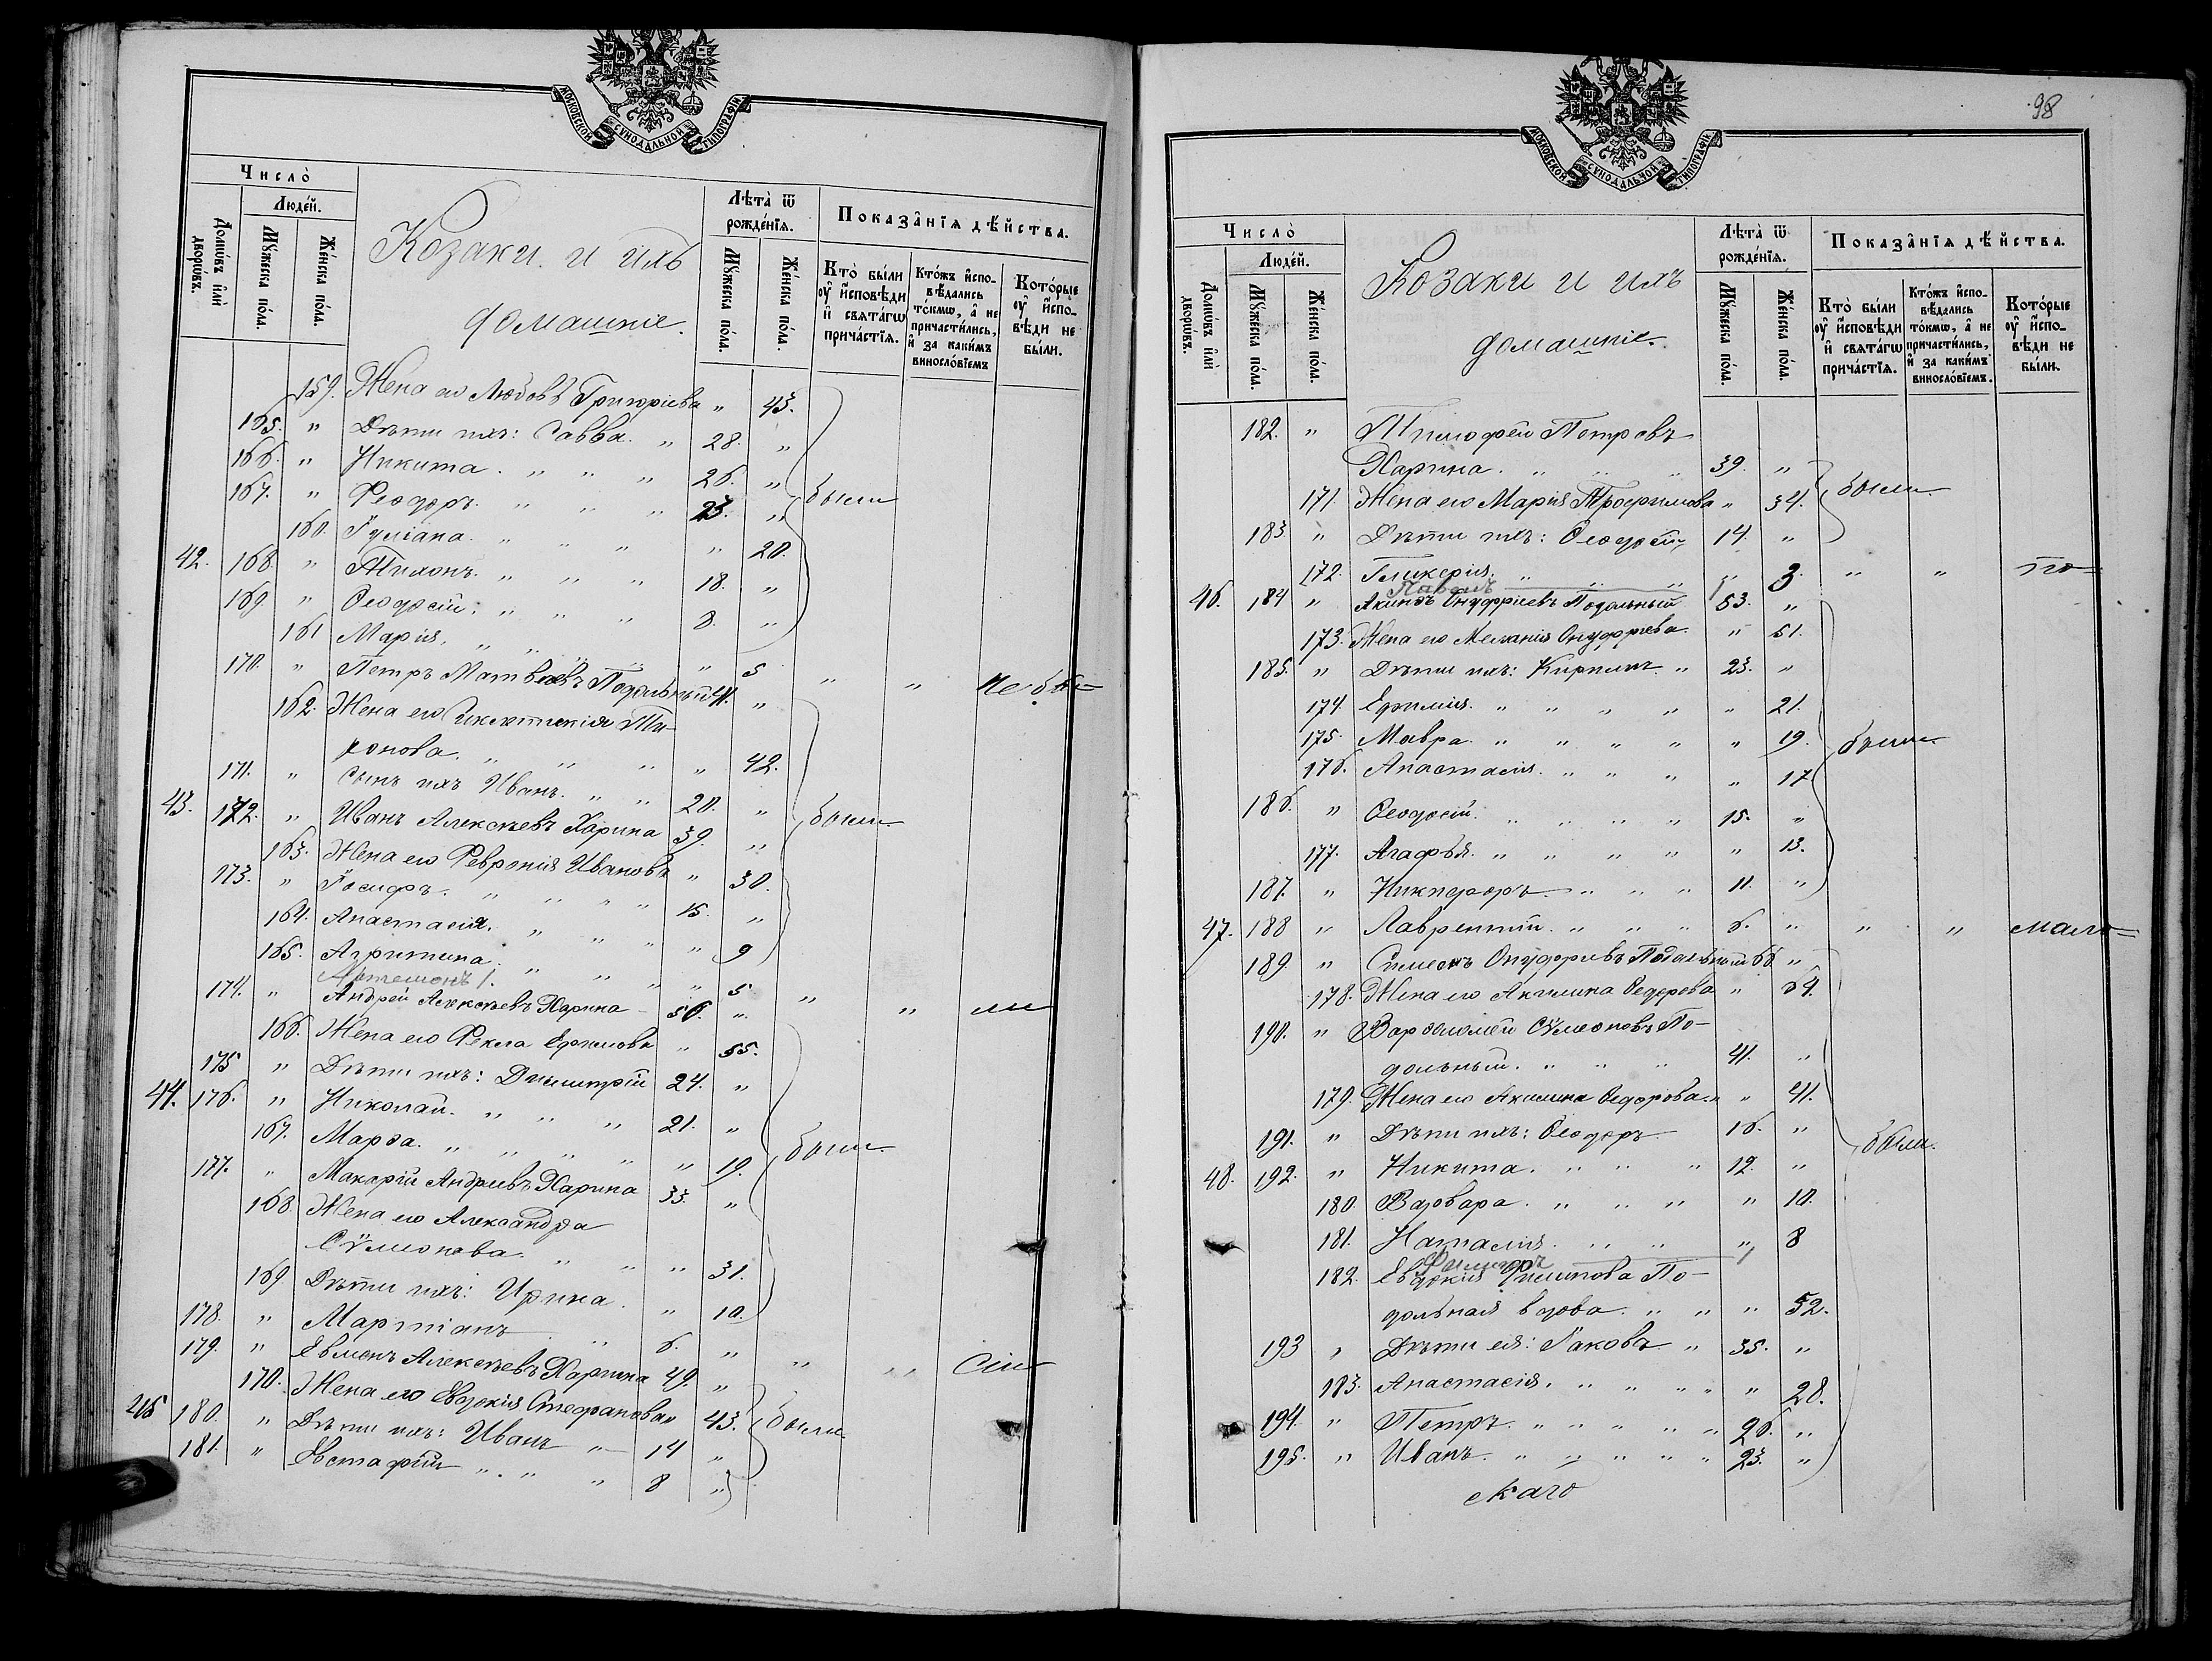 МОСКОВСКОЙ СУНОДАЛЬНОЙ ТИПОГРАФІИ
Число̀
Людéй.
Домѡ́въ и҆лѝ дворѡ́въ.
Мꙋ́жеска по́ла.
Же́нска по́ла.
Козаки и ихъ
домашніе.
Лѣта̀ ѿ рожде́нїѧ.
Мꙋ́жеска по́ла.
Же́нска по́ла.
Показа̂нїѧ дѣ́йства.
Кто̀ бы́ли ᲂу҆ и҆сповѣди и҆ свѧта́гѡ прича́стїѧ.
Кто́жъ и҆спо-вѣдались то́кмѡ, а҆ не причасти́лись, и҆ за каки́мъ винослóвїемъ
Кото́рые ᲂу҆ и҆спо-вѣди не бы́ли.
159. Жена его Любовь Григоріева " 43.
165. " Дѣти ихъ: Савва. " 28. "
166. " Никита. " " " 26. "
167. " Феодоръ. " " " 23. " были
160. Іуліана. " " " " 20.
42. 168. " Тихонъ. " " " 18. "
169 " Ѳеодосій. " " " 8. "
161 Марія. " " " " 5 " " не бы=
170. " Петръ Матвѣевъ Подольный 41. "
162. Жена его Синклитикія Ти-
хонова. " " " " 42.
171. " Сынъ ихъ Иванъ. " " 20. "
43. 172. " Иванъ Алексѣевъ Харина 39. " были
163. Жена его Февронія Иванова " 30.
173. " Іосифъ. " " " " 15. "
164. Анастасія. " " " " 9
165. Агрипина. " " " " 5 " " ли
Артемонъ 1.
174. " Андрей Алексѣевъ Харина 56. "
166. Жена его Фекла Ефимова " 55.
175 " Дѣти ихъ: Димитрій 24. "
44. 176. " Николай. " " " 21. "
167. Марѳа. " " " " " 19. были
177. " Макарій Андреевъ Харина 33. "
168. Жена его Александра
Сѵмеонова. " " " 31.
169 Дѣти ихъ: Ирина. " 10.
178. " Мартіанъ " 6. " " " сіи
179. " Евменъ Алексѣевъ Харина 49. "
170. Жена его Евдокія Стефанова " 43. были
45 180. " Дѣти ихъ: Иванъ " 14 "
181. " Евстафій " " " 8 "
98
МОСКОВСКОЙ СУНОДАЛЬНОЙ ТИПОГРАФІИ
Число̀
Людéй.
Домѡ́въ и҆лѝ дворѡ́въ.
Мꙋ́жеска по́ла.
Же́нска по́ла.
Козаки и ихъ
домашніе.
Лѣта̀ ѿ рожде́нїѧ.
Мꙋ́жеска по́ла.
Же́нска по́ла.
Показа̂нїѧ дѣ́йства.
Кто̀ бы́ли ᲂу҆ и҆сповѣди и҆ свѧта́гѡ прича́стїѧ.
Кто́жъ и҆спо-вѣдались то́кмѡ, а҆ не причасти́лись, и҆ за каки́мъ винослóвїемъ.
Кото́рые ᲂу҆ и҆спо-вѣди не бы́ли.
182. " Тимофей Петровъ
Харина. " " " 39. "
171. Жена его Марія Трофимова " 34. были
183. " Дѣти ихъ: Ѳеодосій, 14. "
172. Гликерія. " " " " 3. " " по=
Павелъ 1
46. 184 " Акимъ Онуфріевъ Подольный 53. "
173. Жена его Меланія Онуфріева. " 51.
185. " Дѣти ихъ: Кириллъ. " 23. "
174. Ефимія. " " " " " 21.
175. Мавра. " " " " " 19. были
176. Анастасія. " " " " 17
186. " Ѳеодосій. " " " " 15. "
177. Агафья. " " " " " 13.
187. " Никифоръ " " " 11. "
47. 188 " Лаврентій. " " " 6. " " " мало=
189. " Симеонъ Онуфріевъ Подольный 66 "
178. Жена его Акилина Ѳедорова " 54.
190. " Варѳоломей Сѵмеоновъ По-
дольный. " " " 41. "
179. Жена его Акилина Ѳедорова. " " 41.
191. " Дѣти ихъ: Ѳеодоръ 16. " были.
48. 192. " Никита. " " " 12. "
180. Варвара. " " " " 10.
181. Наталія. " " " 8
182. Евдокія Филипова По-
дольная вдова. " " " 52.
193 " Дѣти ея: Іаковъ " 35. "
183. Анастасія. " " " " " 28.
194. " Петръ " " " " " 26. "
195. " Иванъ. " " " " " 23. "
скаго